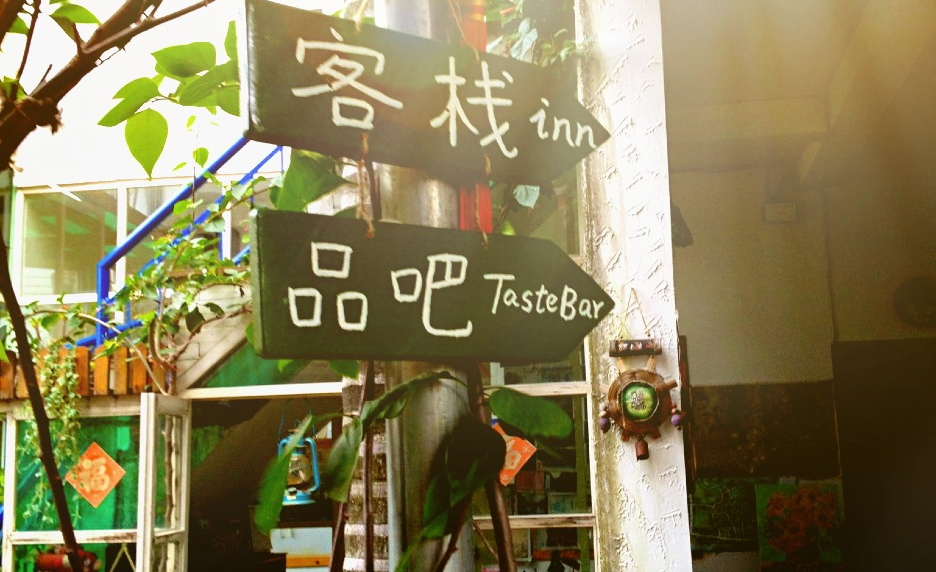 客栈 inn
品吧 TasteBar
福